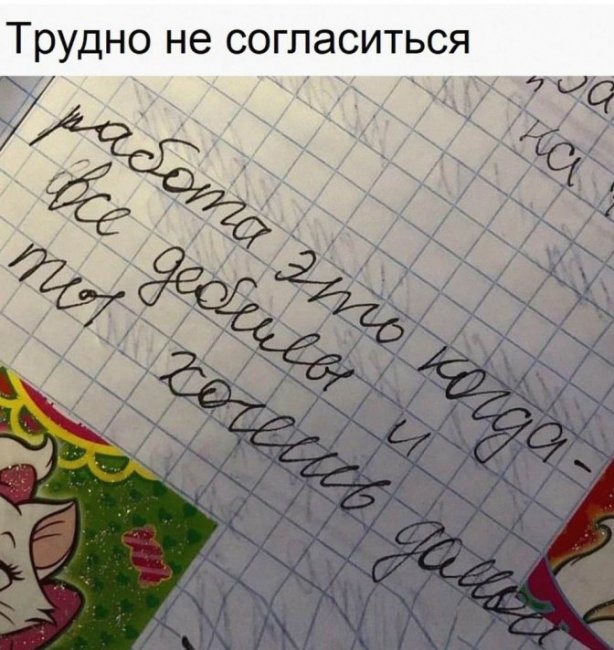 Трудно не согласиться
работа это когда-
все дебилы и
ты хочешь домой
на